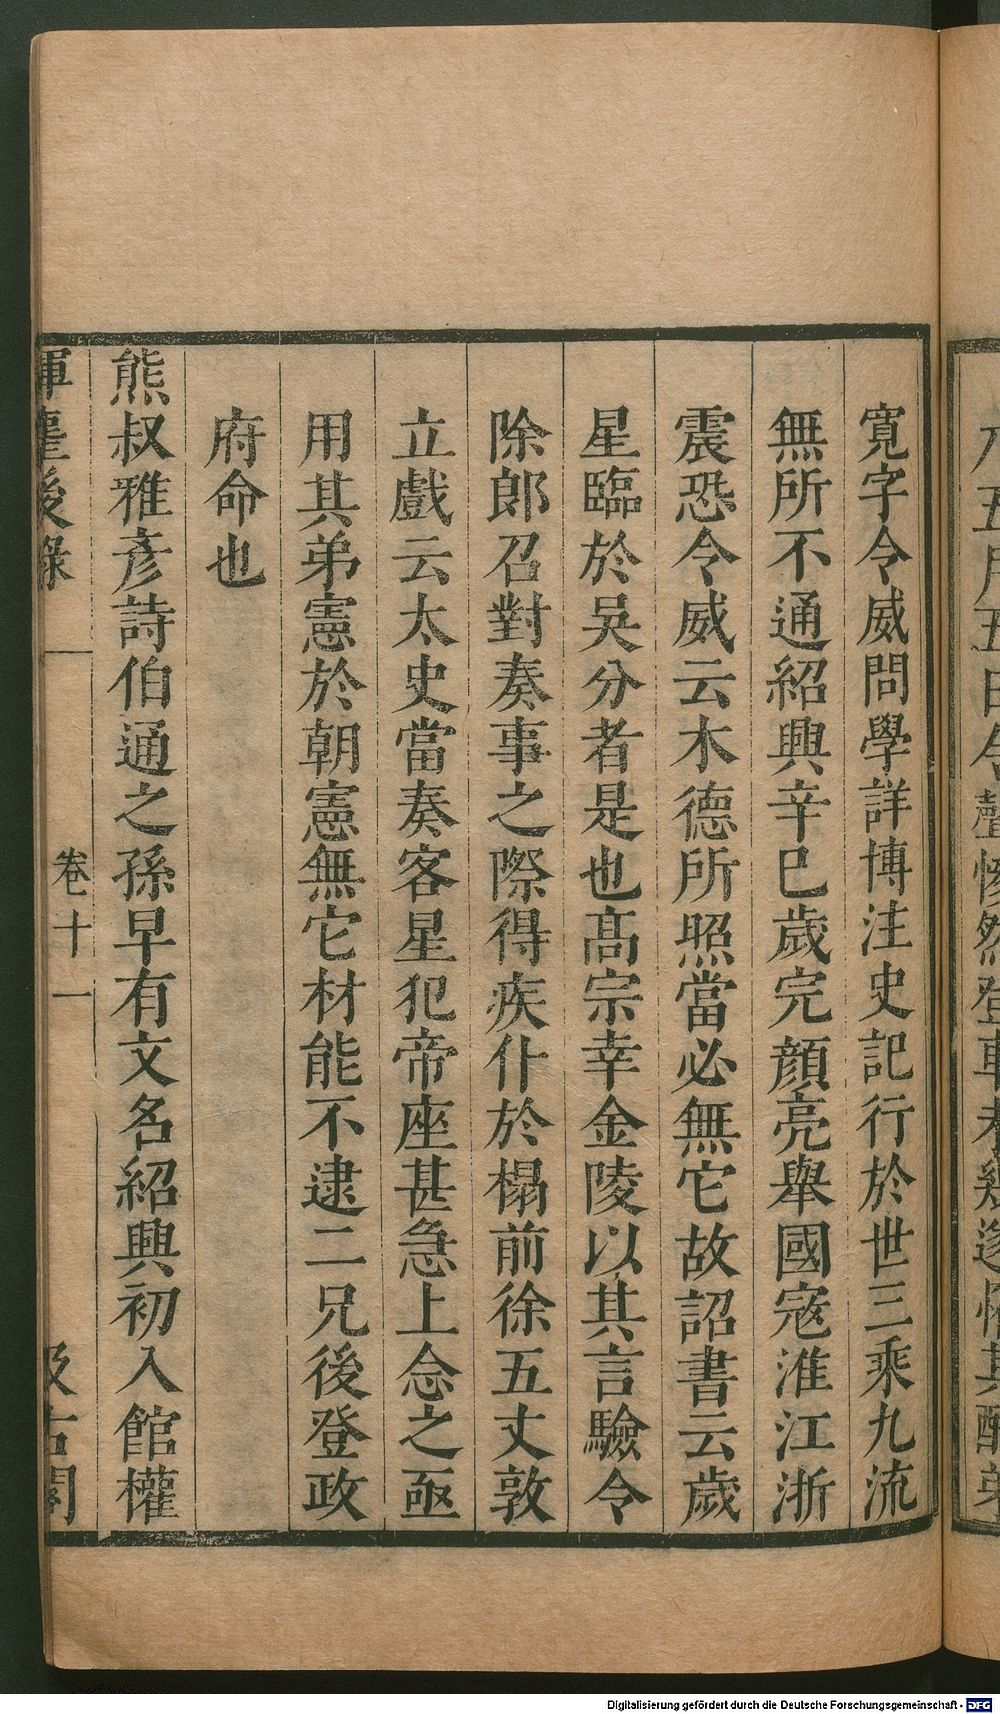 寬字令威問學詳博注史記行於世三乘九流
無所不通紹興辛巳歲完顏亮舉國寇淮江浙
震恐令威云木德所照當必無它故詔書云歲
星臨於吳分者是也髙宗幸金陵以其言驗令
除郎召對奏事之際得疾仆於榻前徐五丈敦
立戲云太史當奏客星犯帝座甚急上念之亟
用其弟憲於朝憲無它材能不逮二兄後登政
府命也
熊叔雅彥詩伯通之孫早有文名紹興初入館權
揮麈後錄 卷十一 汲古閣
Digitalisierung gefördert durch die Deutsche Forschungsgemeinschaft - DFG